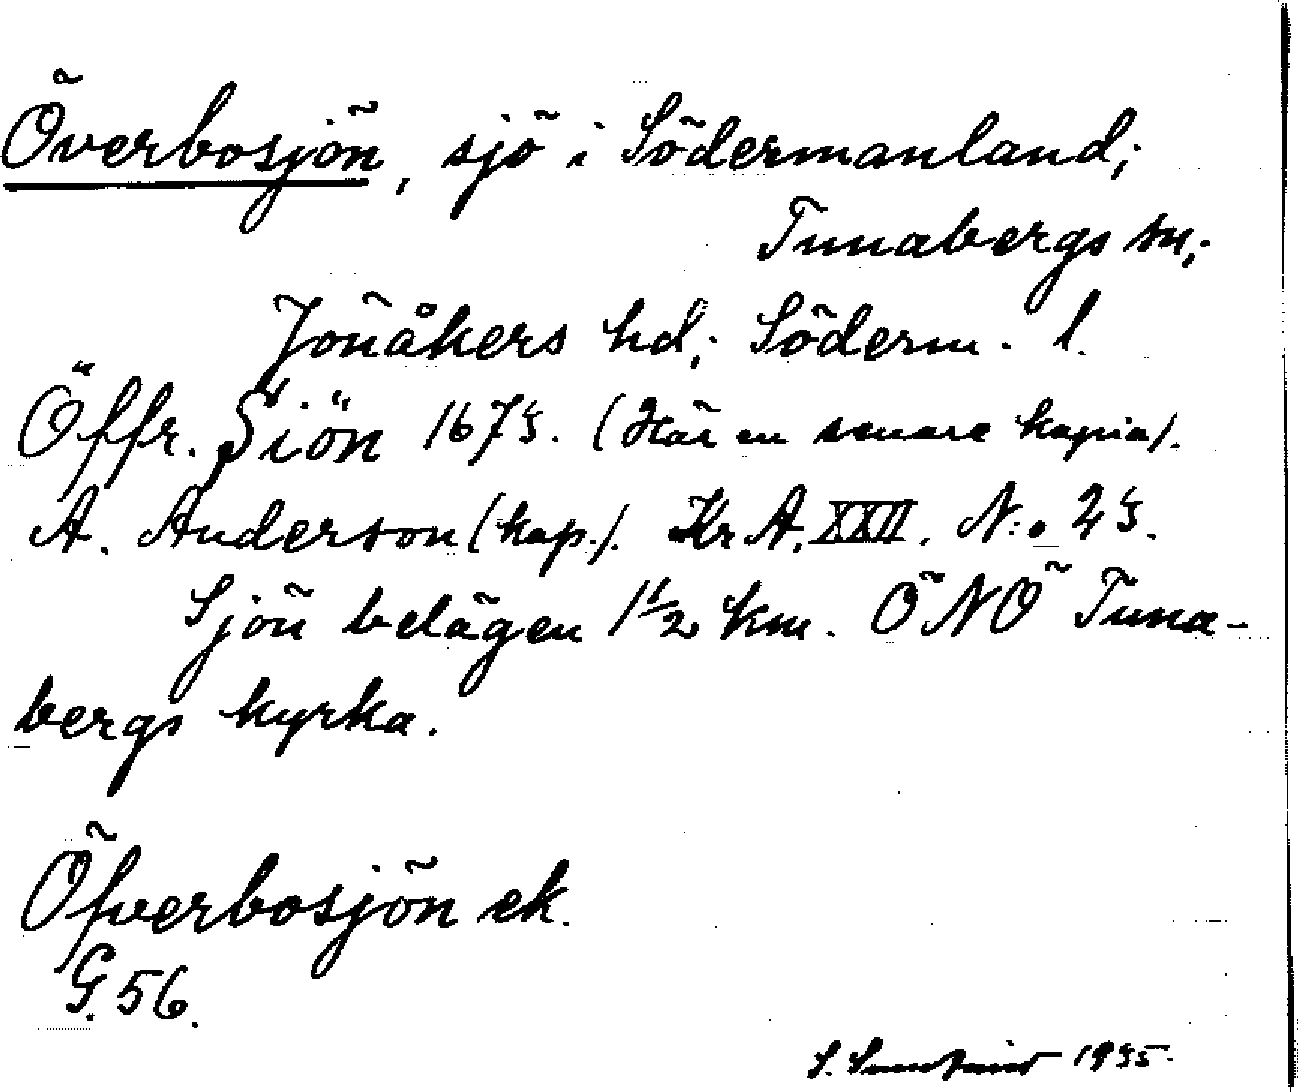 Överbosjön, sjö i Södermanland;
Tunabergs sn;
Jönåkers hd; Söderm. l.
Öffr. Siön 1675. (Här en senare kopia).
A. Anderson (kop.). Kr A. XXII. N:o 25.
Sjön belägen 1 1/2 km. ÖNÖ Tuna-
bergs kyrka.
Öfverbosjön ek.
G. 56.
S. 1935.